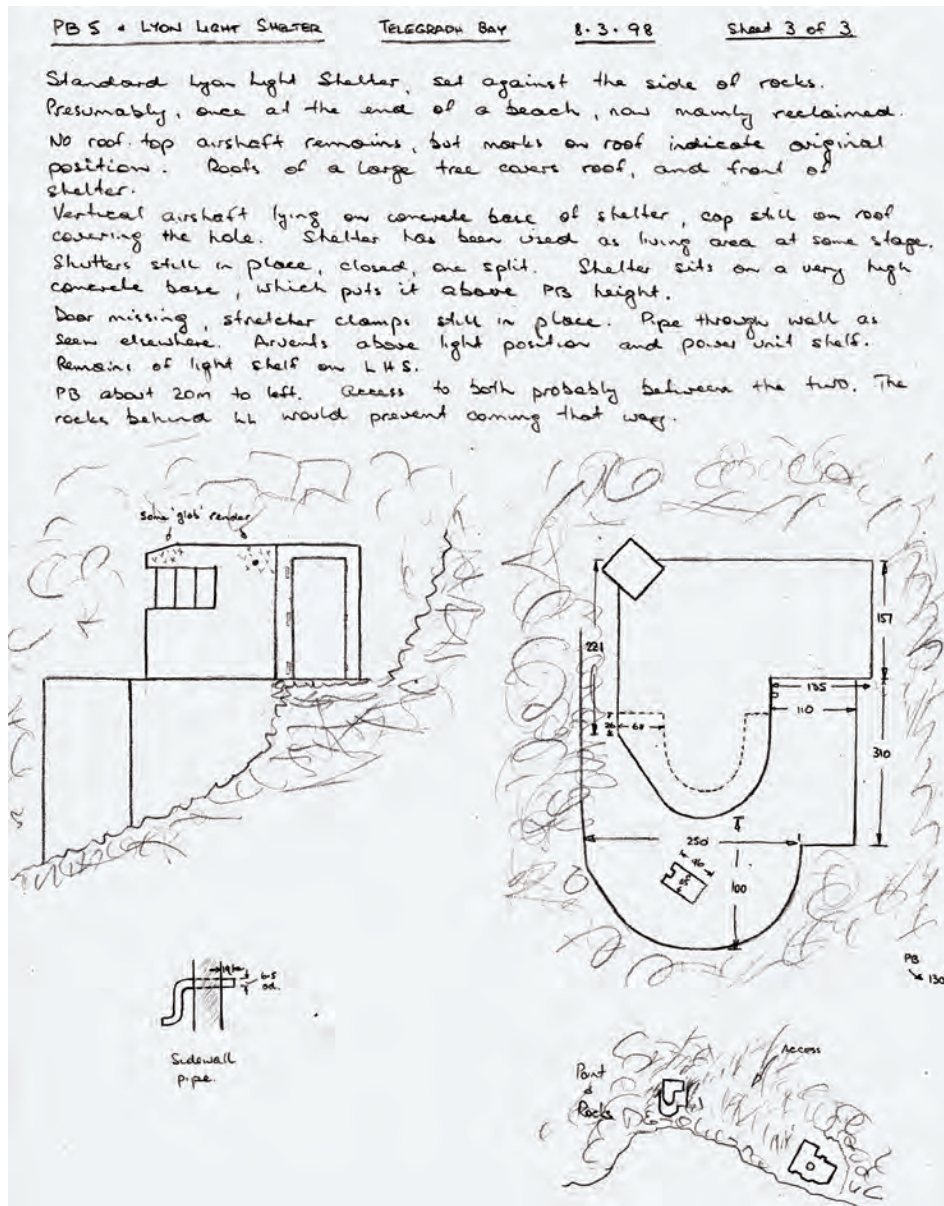 PB 5 & LYON LIGHT SHELTER TELEGRAPH BAY 8.3.98 Sheet 3 of 3
Standard Lyon Light Shelter, set against the side of rocks.
Presumably, once at the end of a beach, now mainly reclaimed.
No roof top airshaft remains, but marks on roof indicate original
position. Roots of a large tree covers roof, and front of
shelter.
Vertical airshaft lying on concrete base of shelter, cap still on roof
covering the hole. Shelter has been used as living area at some stage.
Shutters still in place, closed, one split. Shelter sits on a very high
concrete base, which puts it above PB height.
Door missing, stretcher clamps still in place. Pipe through wall as
seen elsewhere. Airvents above light position and power unit shelf.
Remains of light shelf on LHS.
PB about 20m to left. Access to both probably between the two. The
rocks behind LL would prevent coming that way.
some 'glob' render
221
157
135
110
26
68
310
250
46
100
PB
130
6.5
od.
Sidewall
pipe.
Access
Point
&
Rocks